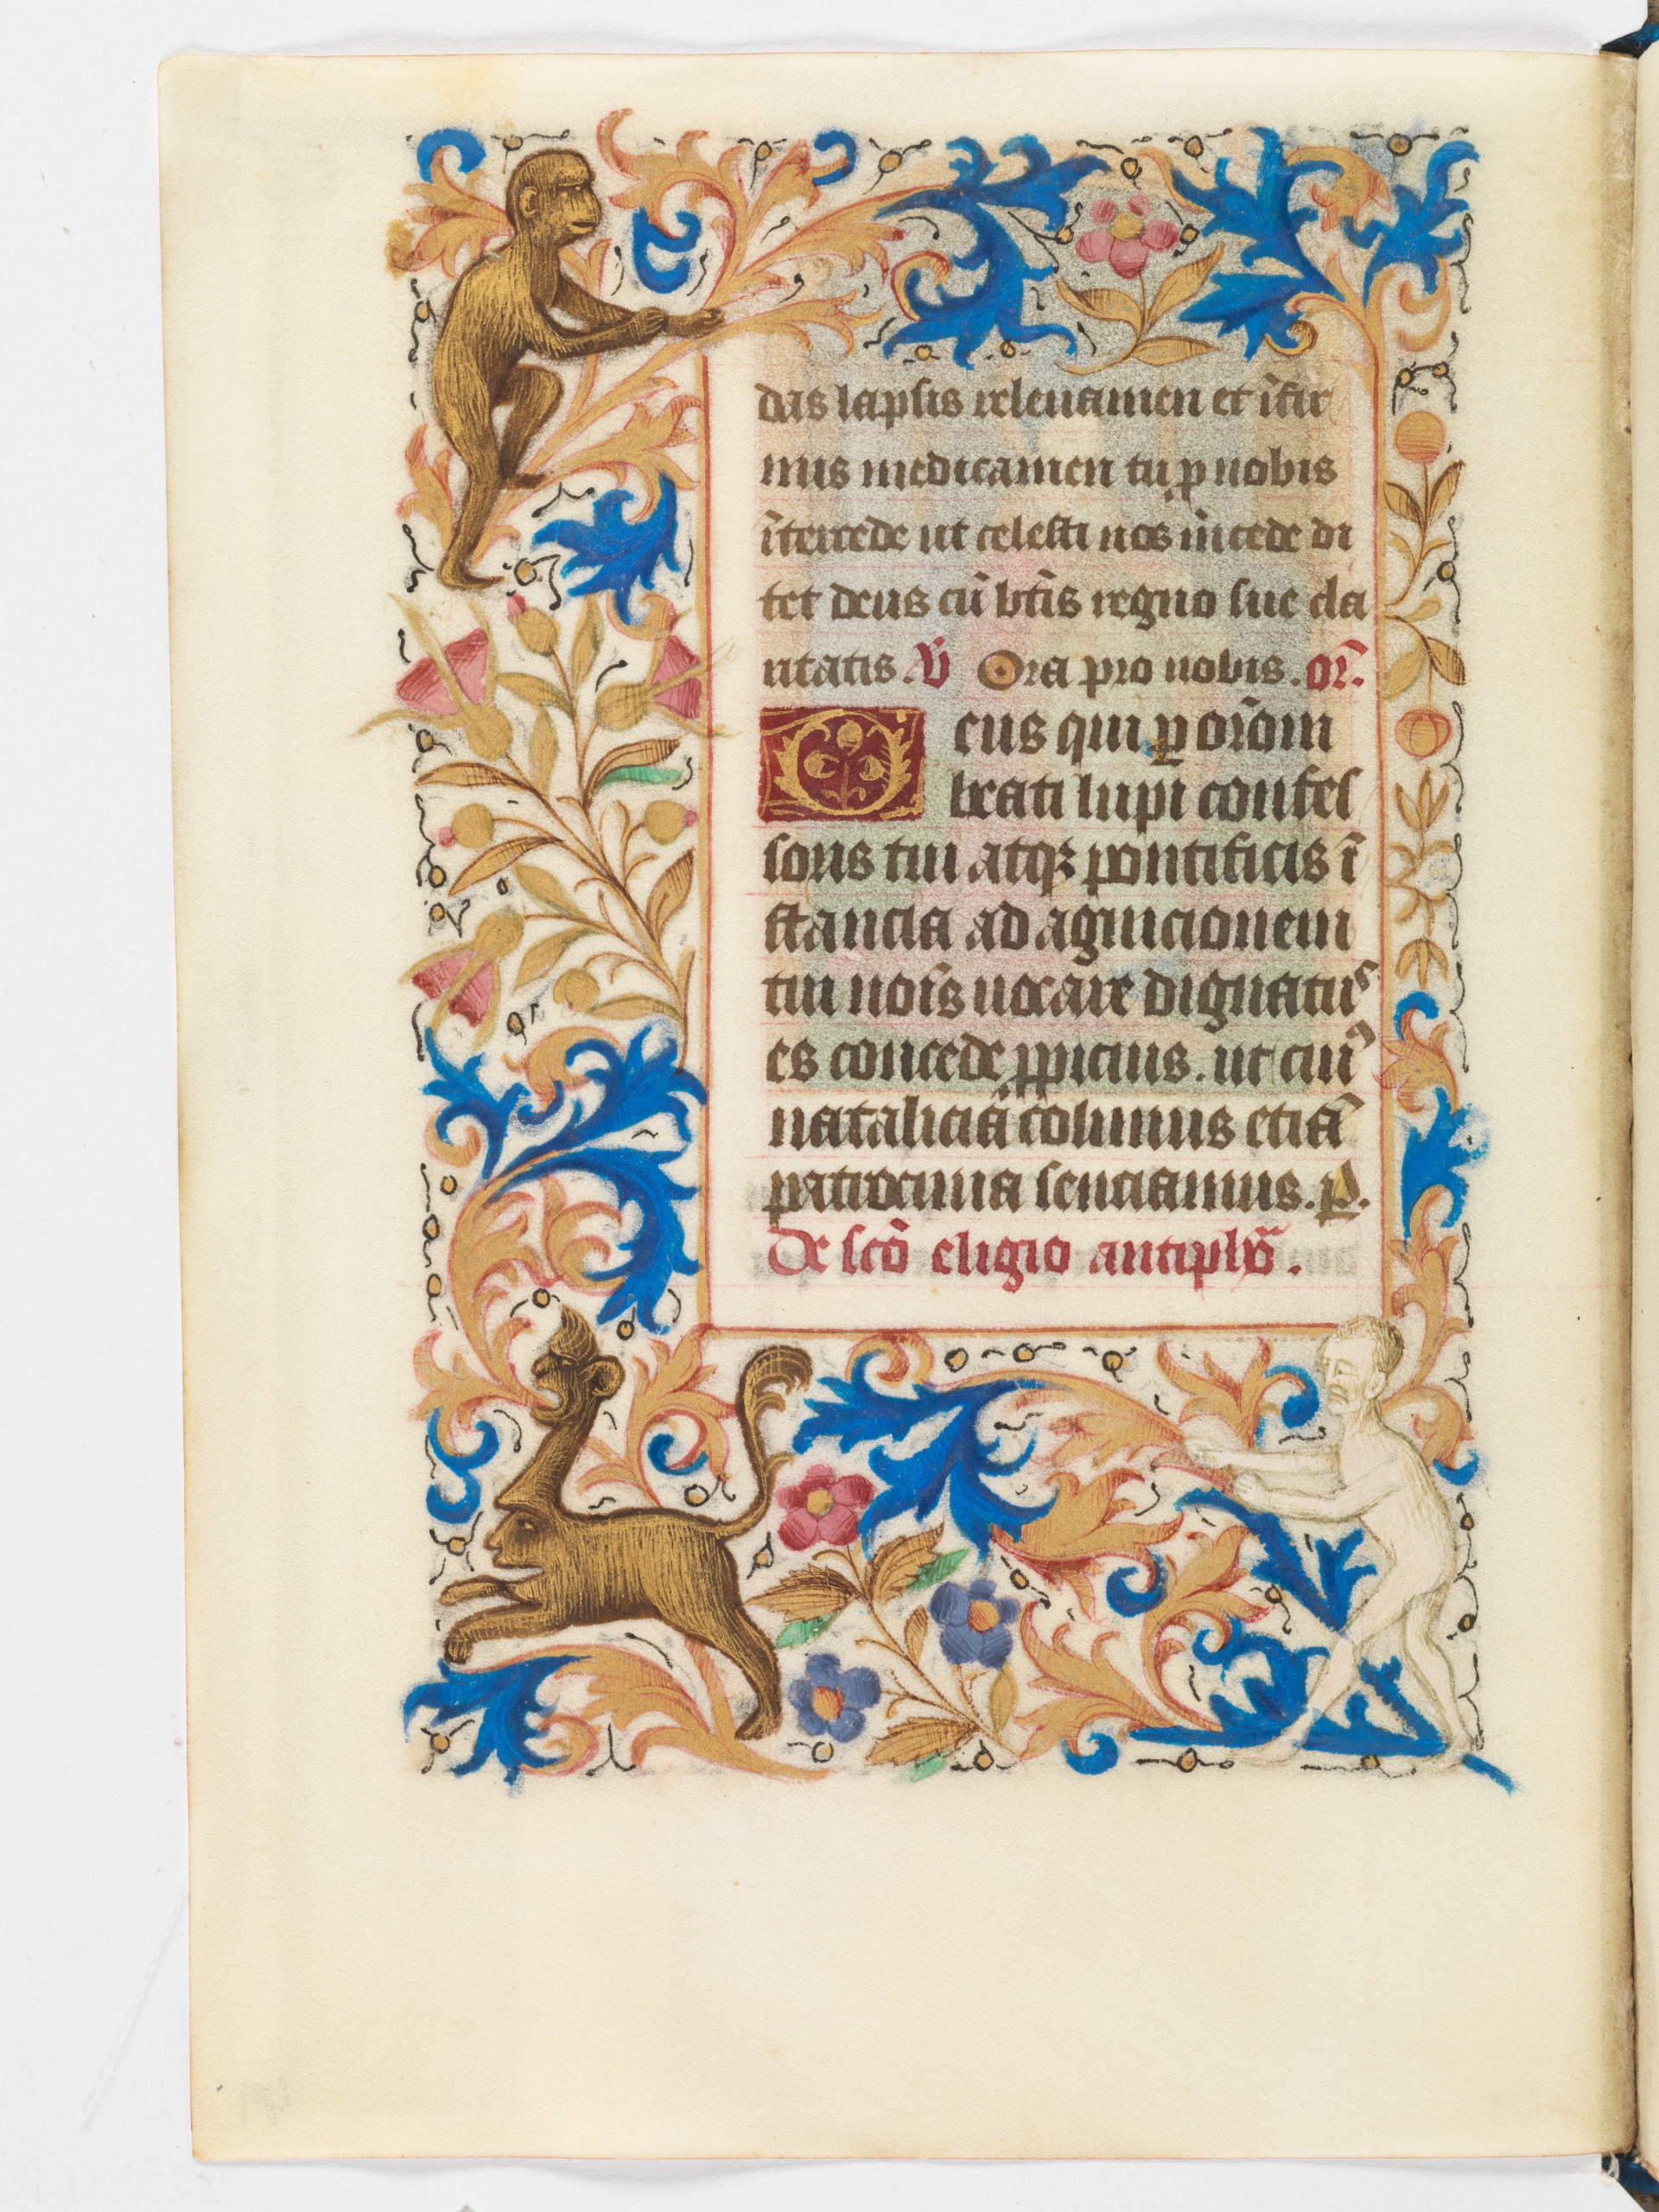 das lapsis releuamen et īfir
mis medicamen tu p nobis
ītercede ut celesti nos m̄cede di
tet deus cū btīs regno sue cla
ritatis. V̄ Ora pro nobis. or̄.
Deus qui p orōm
beati lupi confes
soris tui atqꝫ pontificis ī
stancia ad agnicionem
tui nois̄ uocare dignatus
es concede ꝓpicius. ut cuiꝰ
nataliciā colimus etiā
patrocinia senciamus. p.
De scō eligio antiphā.